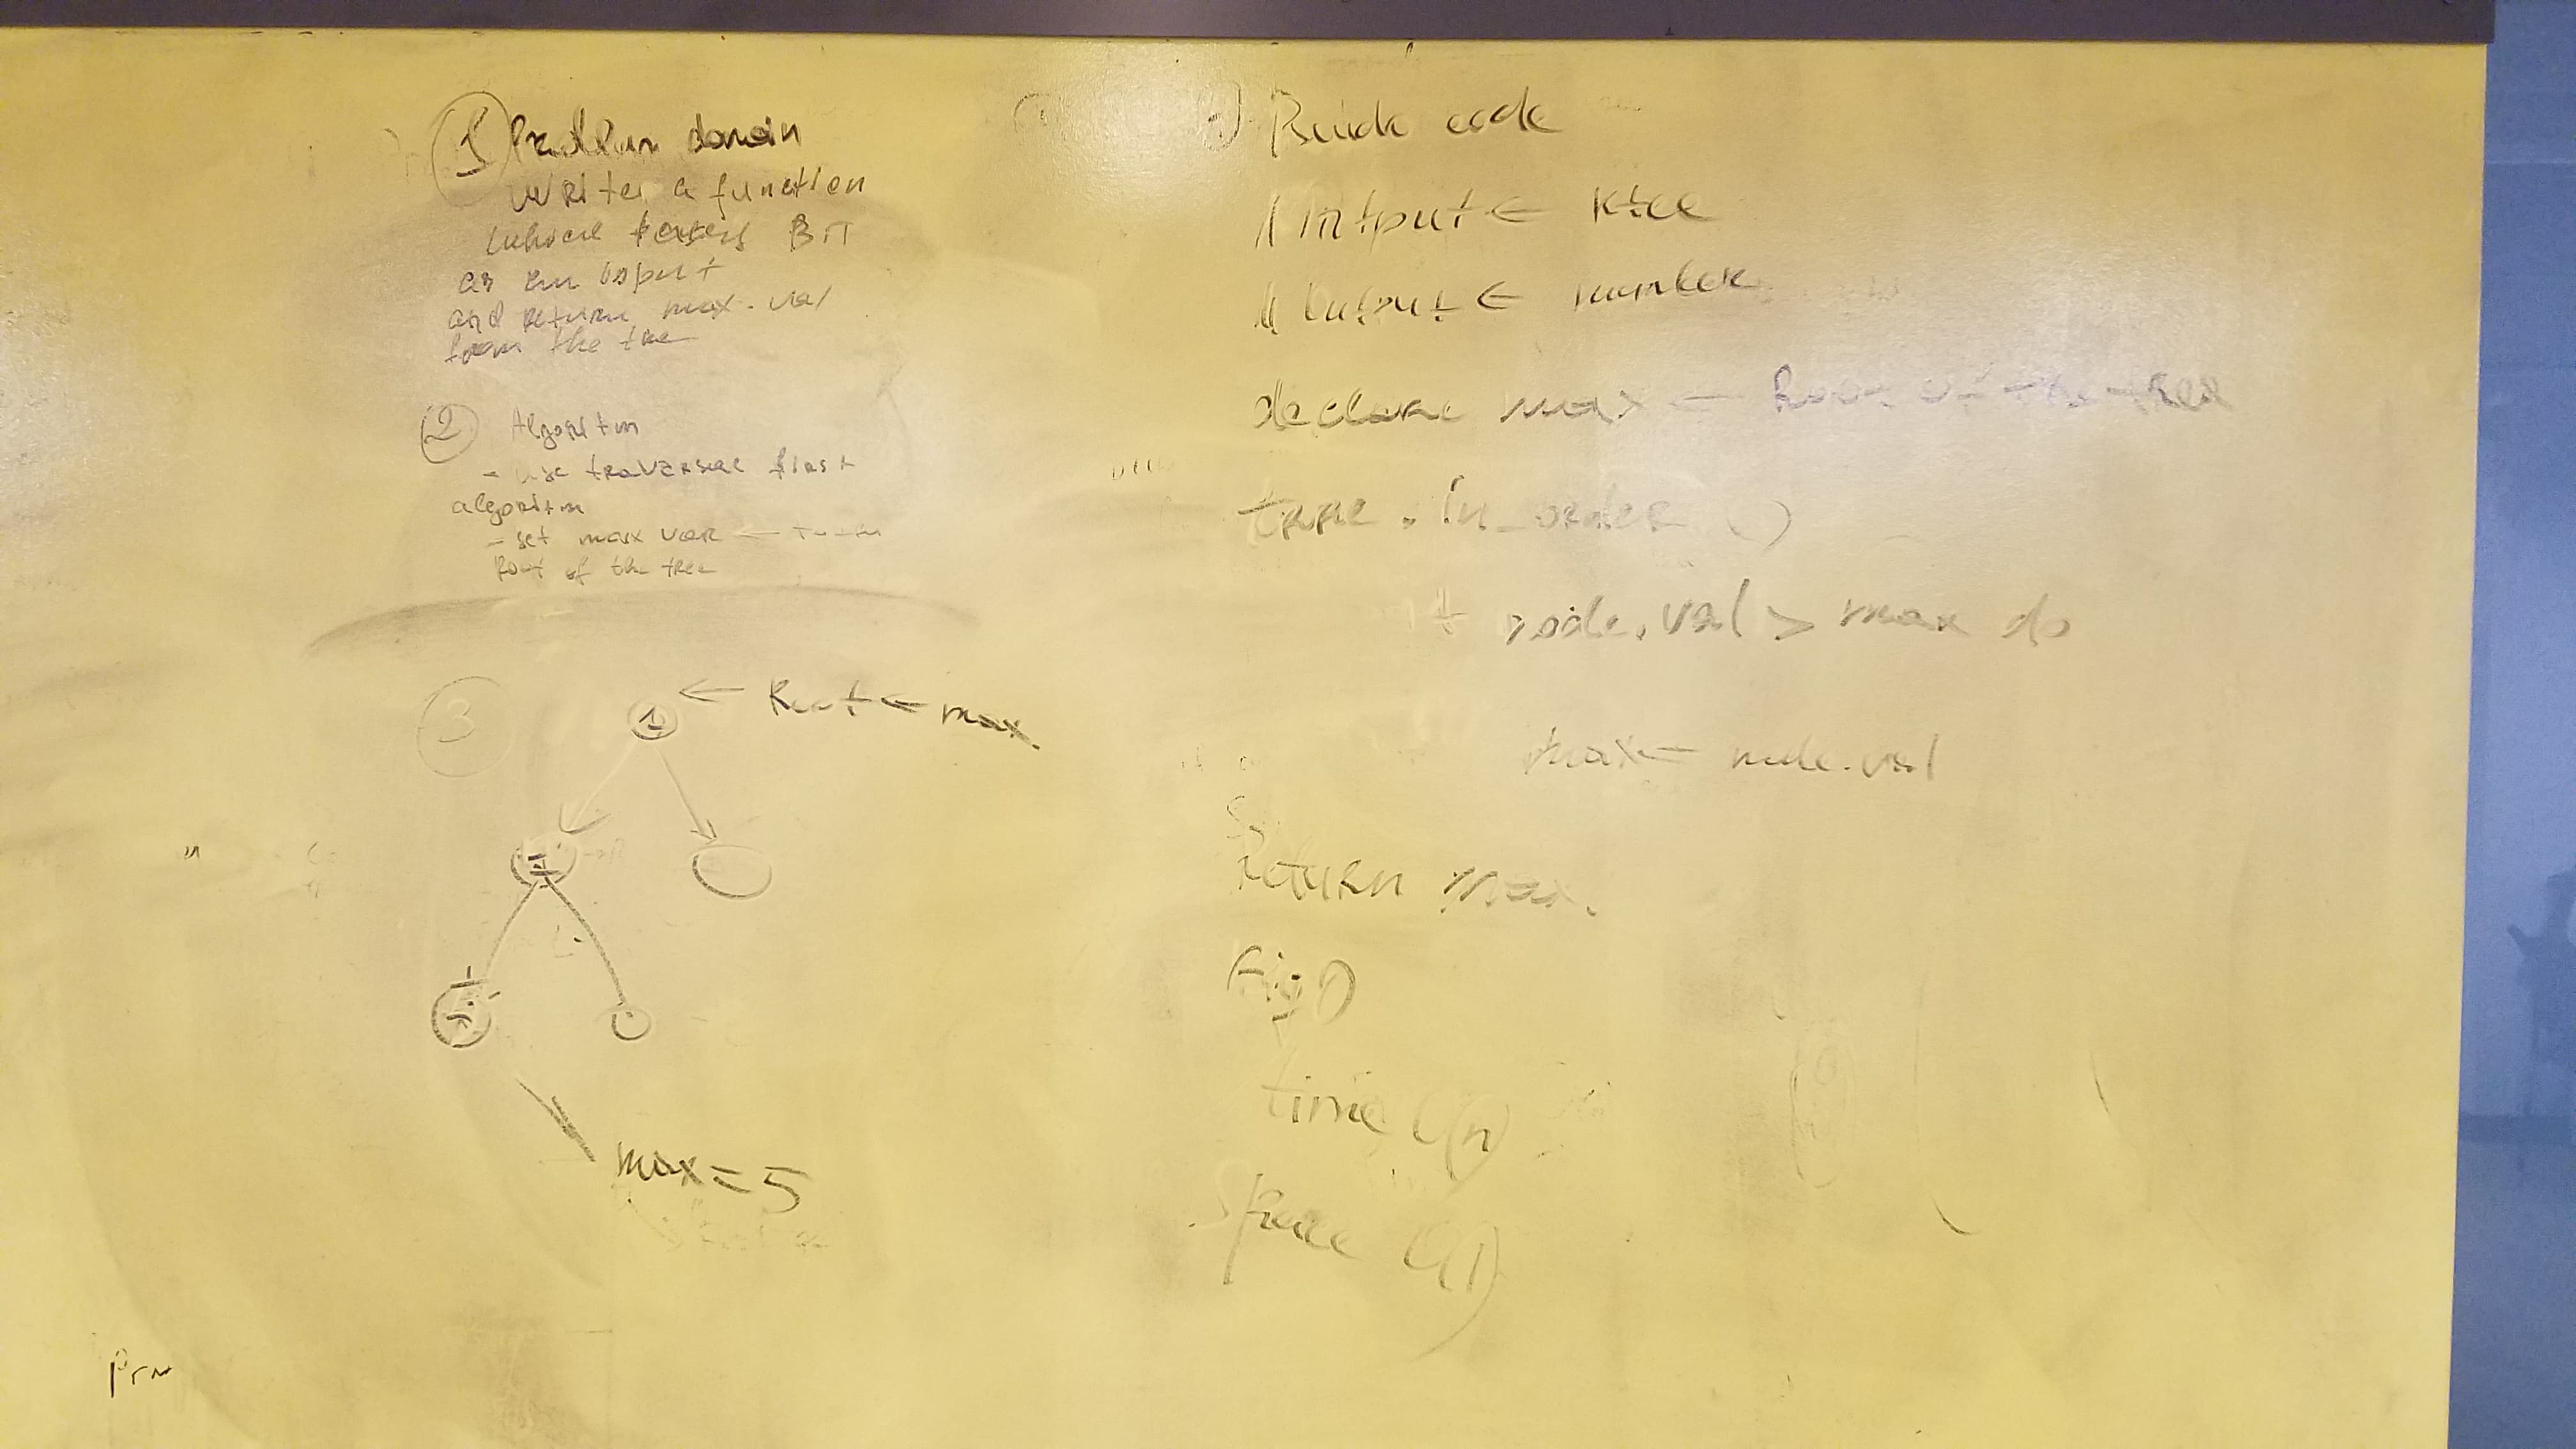 1 Problem domain
Writes a function
whice takes BT
as an input
and return max-val
from the tree
2 Algoritm
- use traversal first
algoritm
- set max var ←
Root of the tree
3
1 ← Root ← max.
max = 5
Psuide code
// intput ← ktree
// Output ← number
declare max ← Root of the tree
tree.in_order()
if node.val > max do
max ← node.val
return max.
Big O
time O(n)
Space O(1)